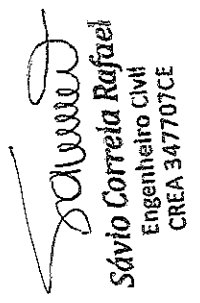 Sávio Correia Rafael
Engenheiro Civil
CREA 347707CE